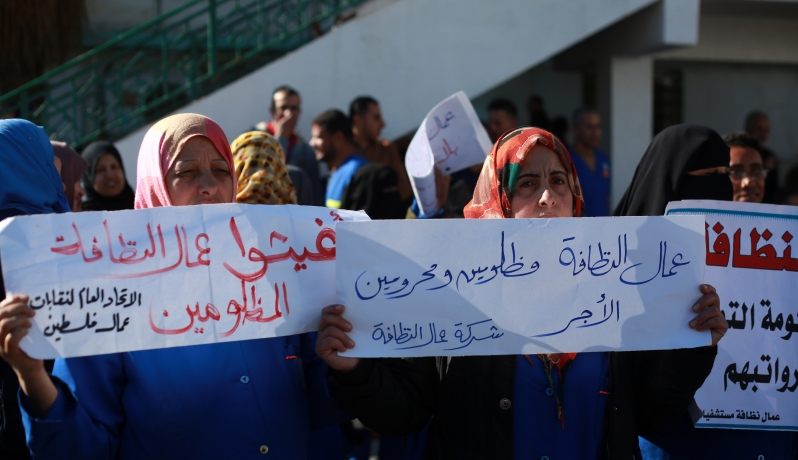 أغيثوا عمال النظافة
المظلومين
الاتحاد العام لنقابات
عمال فلسطين
عمال النظافة مظلومين ومحرومين
الأجر
شركة عمال النظافة
عمال
نظافة
ومة
رواتبهم
عمال نظافة مستشفيات